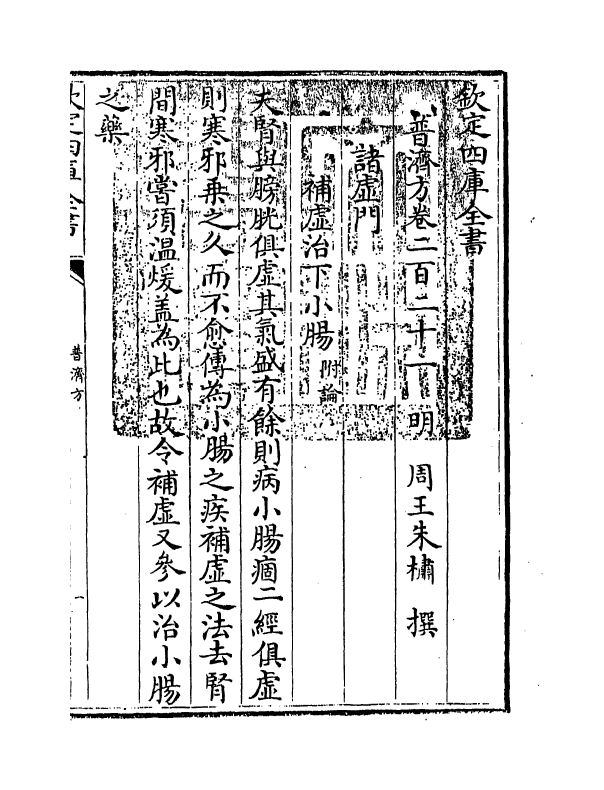 欽定四庫全書
普濟方卷二百二十一 明 周王朱橚 撰
諸虛門
補虛治下小腸附論
夫腎與膀胱俱虛其氣盛有餘則病小腸痼二經俱虛
則寒邪乗之久而不愈傳為小腸之疾補虛之法去腎
間寒邪嘗須温煖盖為此也故令補虛又參以治小腸
之藥
欽定四庫全書
普濟方
一